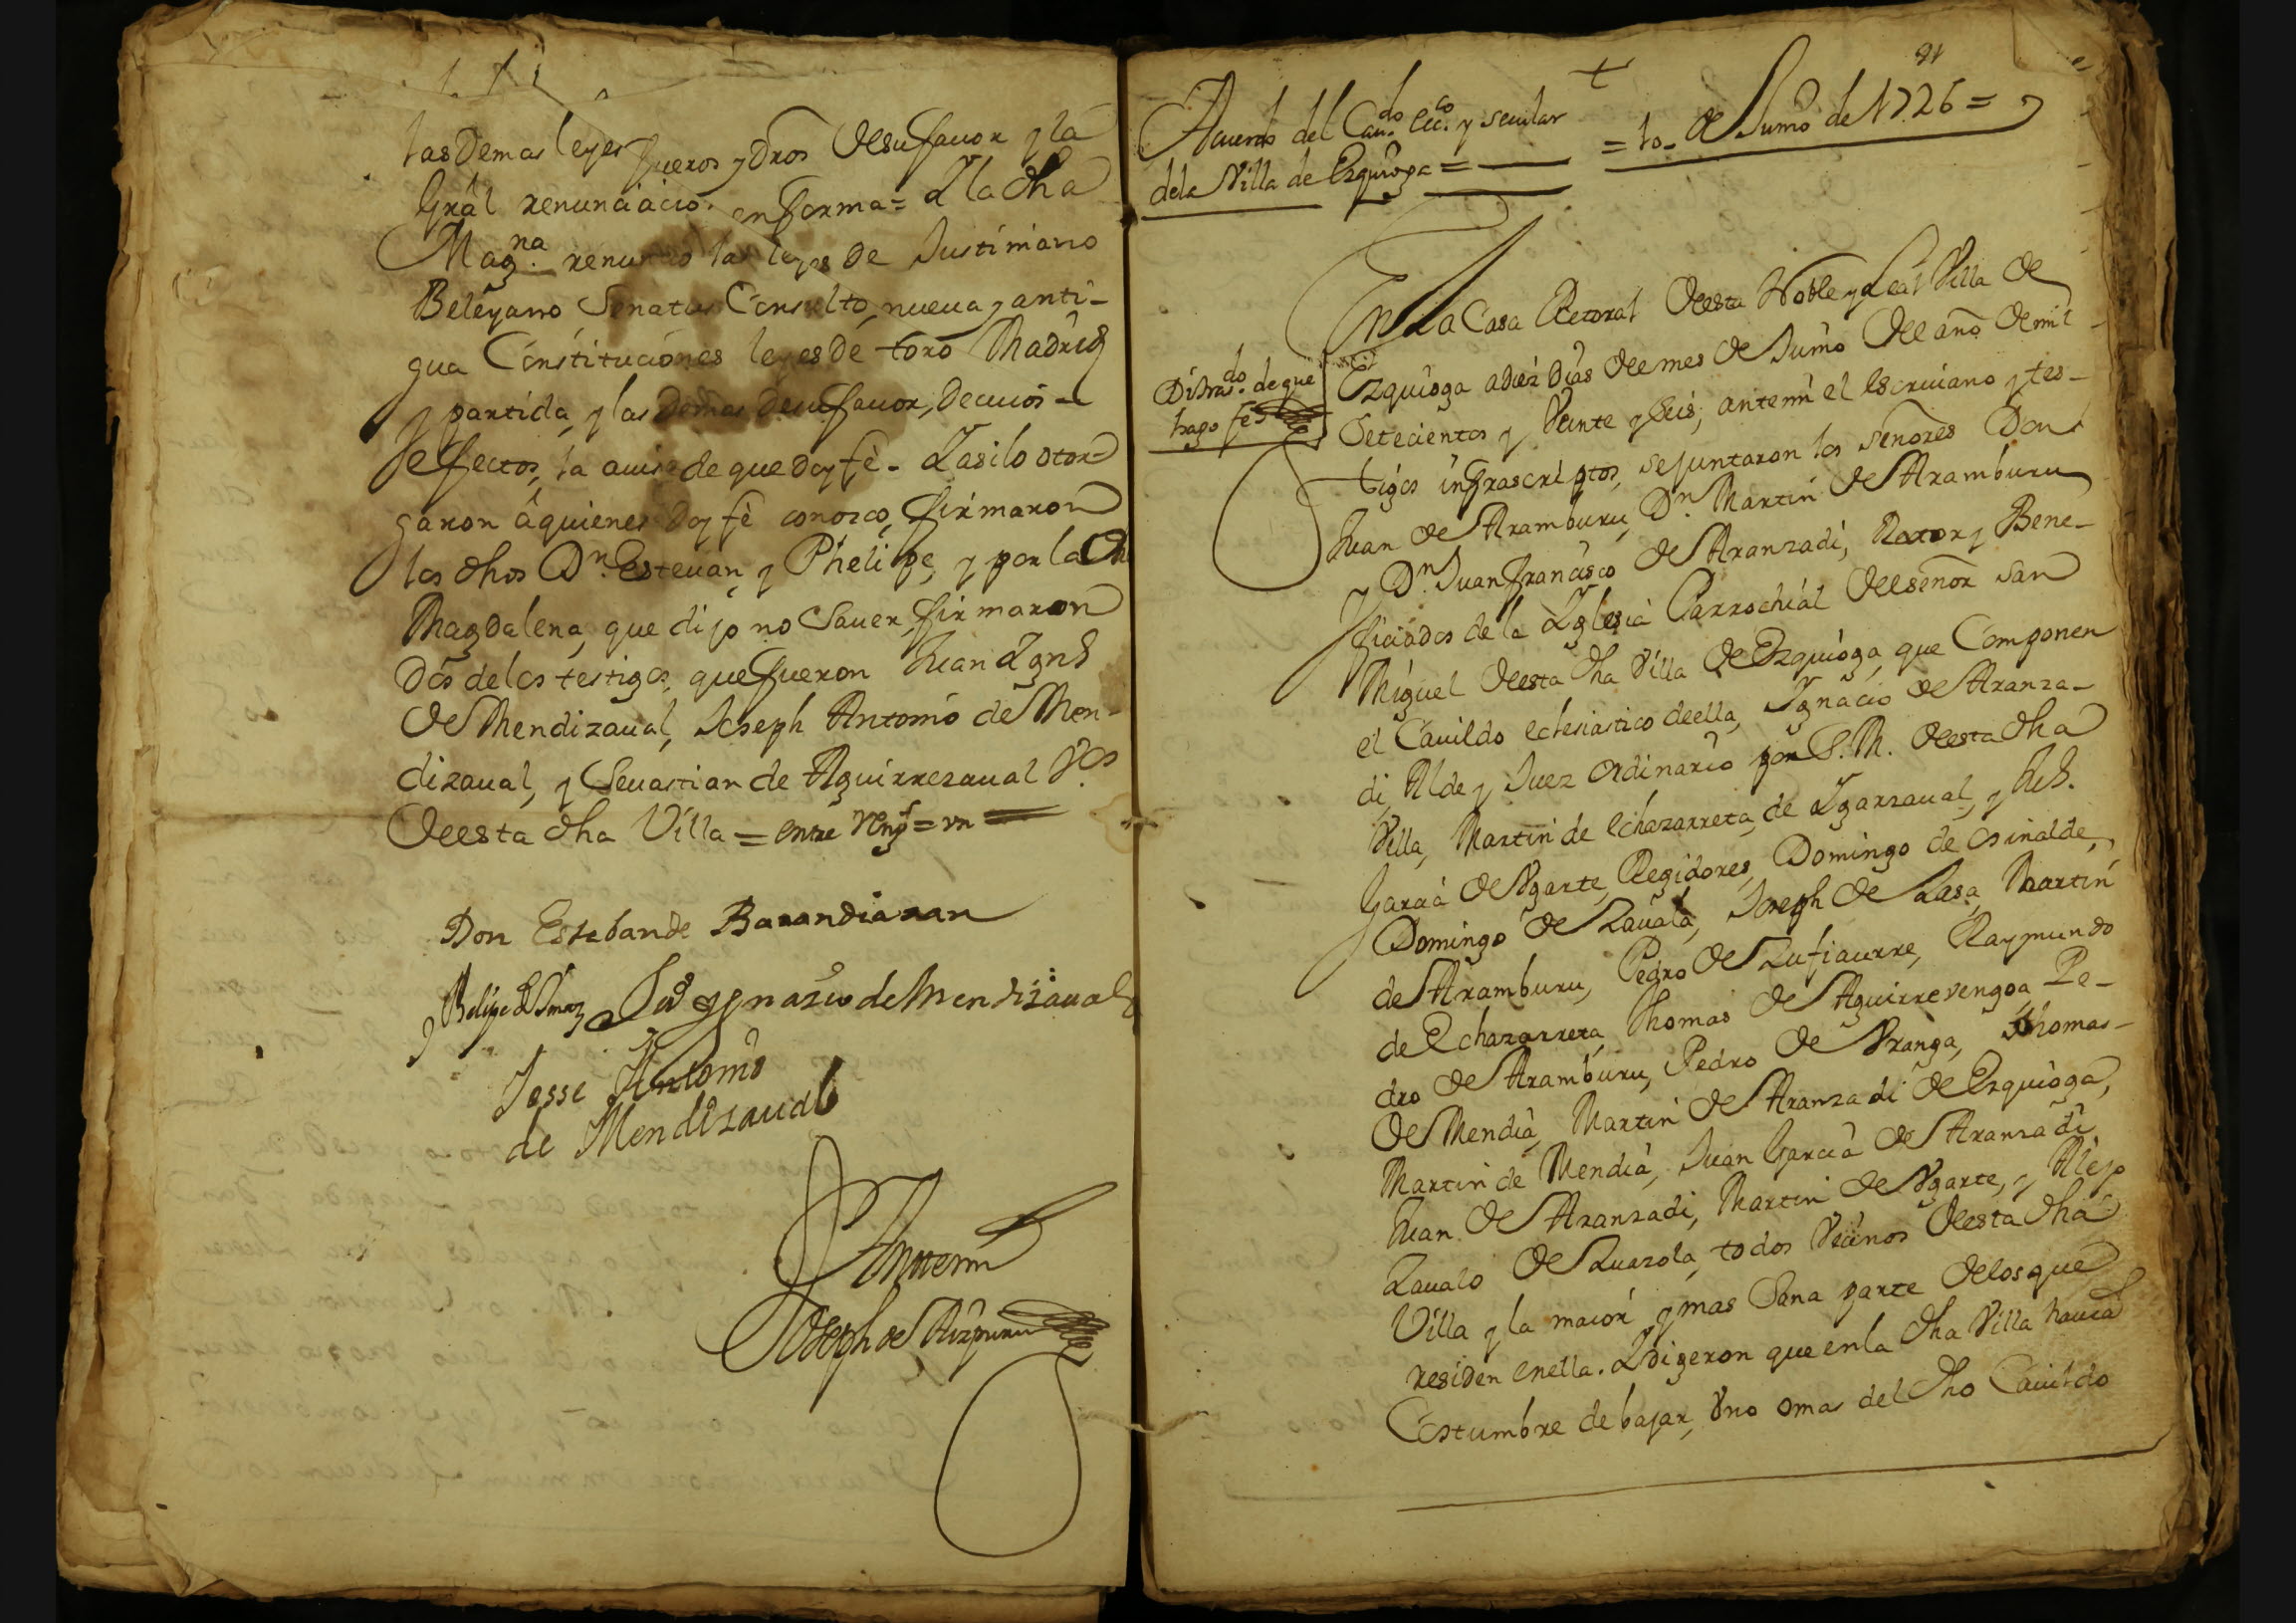 las Demas leyes fueros y dros de su favor y la
Gral renunciacio. en forma = Y la dha
Mag.na renunció las leyes de Justiniano
Beleyano Senatus Consulto, nueua y anti-
gua Constituciones leyes de toro Madrid
y partida, y las demas de su fauor, de cuios
efectos, la auise de que doy fè - Y asi lo otor-
garon â quienes doy fè conozco, firmaron
los dhos Dn. Esteuan, y Phelipe, y por la dha
Magdalena, que dijo no Sauer, firmaron
dos de los testigos, que fueron Juan Ygnº
de Mendizaual, Joseph Antonio de Men-
dizaual, y Seuastian de Aguirrezaual Vos.
de esta dha Villa = entre Rengs = vn =
Don Esteban de Barandiaran
Ju ygnazio de Mendizaual
Josse Antonio
de Mendizaual
Antemi
Joseph de Aizpuru
91
+
Acuerdo del Cau.do Ecc.co y secular
de la Villa de Ezquioga =
= 10 - de Junio de 1726 =
En La Casa Retoral de esta Noble y Leal Villa de
Ezquioga a diez dias de el mes de Junio de el año de mil
Setecientos y Veinte y seis, antemi el escriuano y tes-
tigos infrascriptos, se juntaron los señores Don
Juan de Aramburu, Dn. Martin de Aramburu
y Dn. Juan francisco de Aranzadi, Retor y Bene-
ficiados de la Yglesia Parrochial de el señor san
Miguel de esta dha Villa de Ezquioga, que Componen
el Cauildo eclesiastico de ella, Ygnacio de Aranza-
di, Alde y Juez ordinario por S.M. de esta dha
Villa, Martin de Echazarreta, de Ygarzaual, y
Garcia de Vgarte, Regidores, Domingo de Osinalde,
Domingo de Zauala, Joseph de Lasa, Martin
de Aramburu, Pedro de Zufiaurre, Raymundo
de Echazarreta, Thomas de Aguirrevengoa, Pe-
dro de Aramburu, Pedro de Vranga, Thomas
de Mendia, Martin de Aranzadi de Ezquioga,
Martin de Mendia, Juan Garcia de Aranzadi
Juan de Aranzadi, Martin de Vgarte, y Alejo
Zaualo de Zuazola, todos Vecinos de esta dha
Villa y la maior y mas Sana parte de los que
residen en ella. Y digeron que en la dha Villa hauia
Costumbre de bajar, Vno o mas del dho Cauildo
Di tras.do de que
hago fe